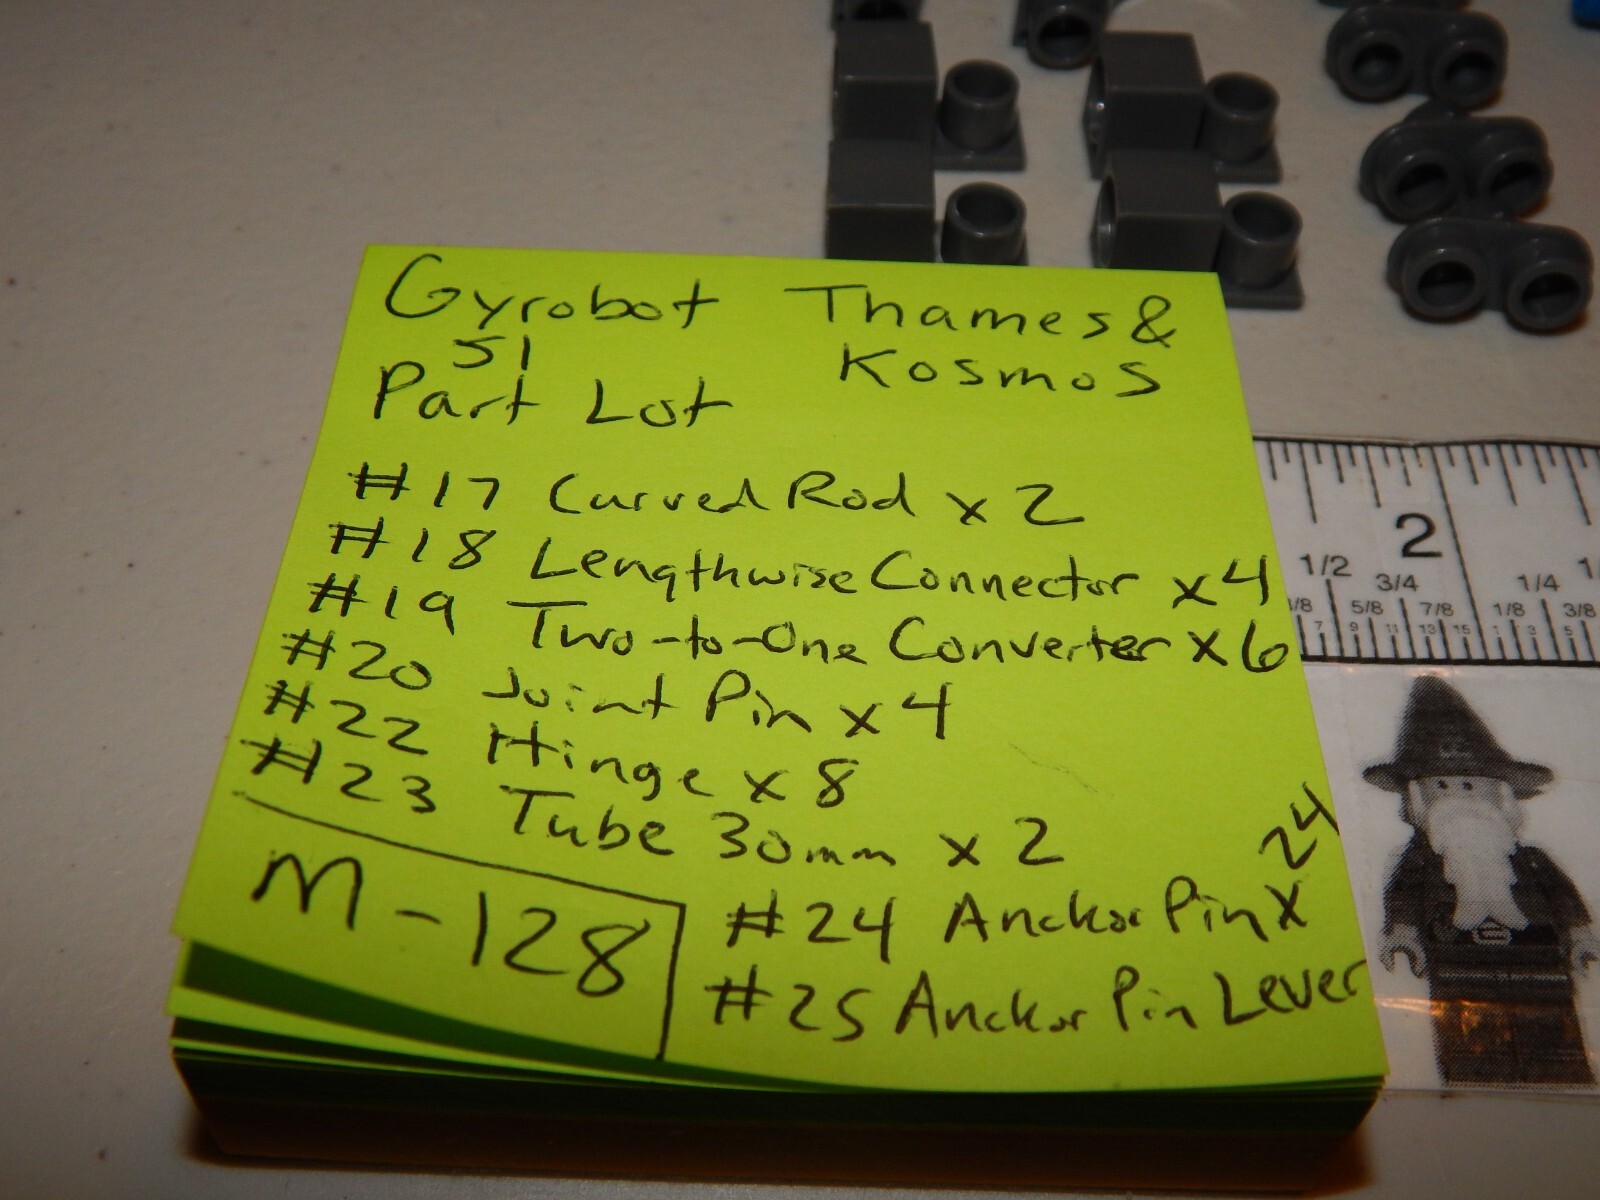 Gyrobot Thames &
51 Kosmos
Part Lot
#17 Curved Rod x 2
#18 Lengthwise Connector x 4
#19 Two-to-One Converter x 6
#20 Joint Pin x 4
#22 Hinge x 8
#23 Tube 30mm x 2
#24 Anckor Pin x 24
#25 Anckor Pin Lever
M-128
2
1/2 3/4 1/4
5/8 7/8 1/8 3/8
7 9 11 13 15 1 3 5